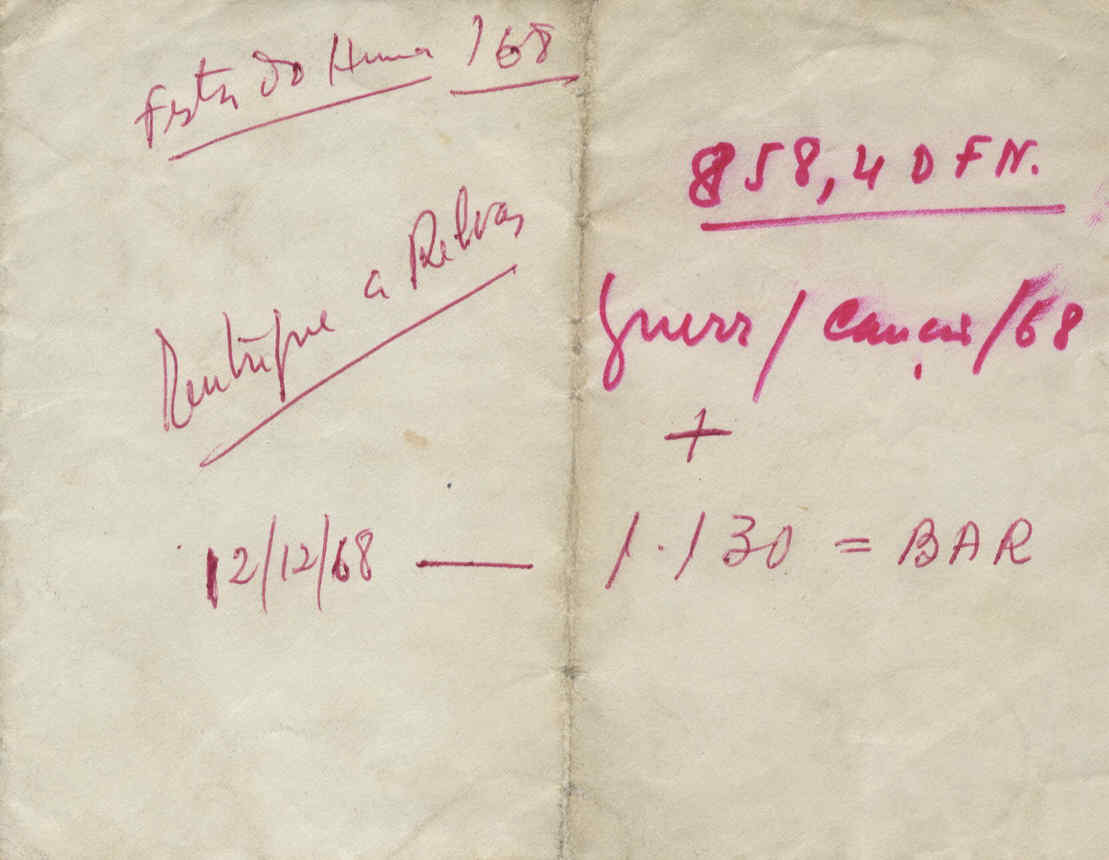 Festa do Huma /68
a Relvas
12/12/68 —
858,40 FN.
Guerr/ Cancio/68
+
1.130 = BAR